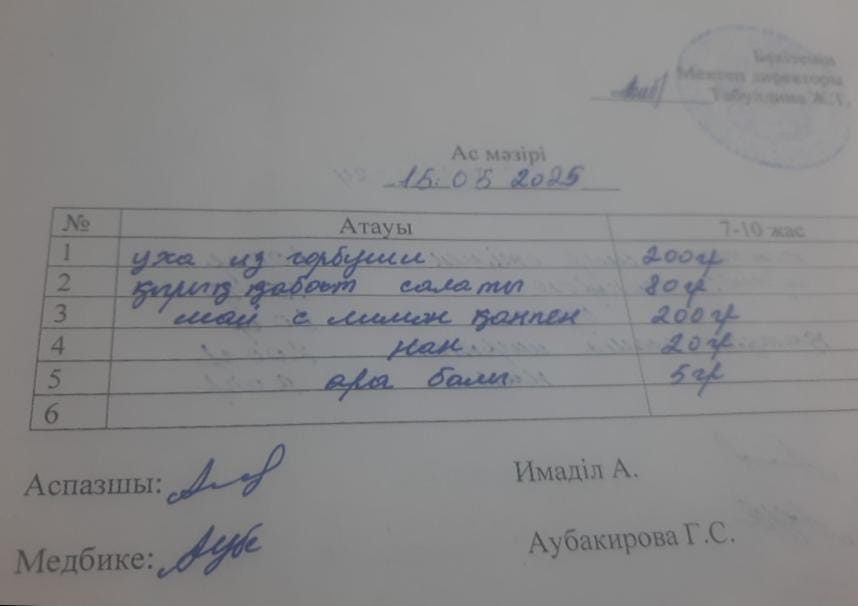 Бекітемін
Мектеп директоры
Ас мәзірі
15.05 2025
№ Атауы 7-10 жас
1 уха из горбуши 200гр
2 қырық қабат салаты 80гр
3 шай с лимон қантпен 200гр
4 нан 20гр
5 ара балы 5гр
6
Аспазшы: Имаділ А.
Медбике: Аубакирова Г.С.